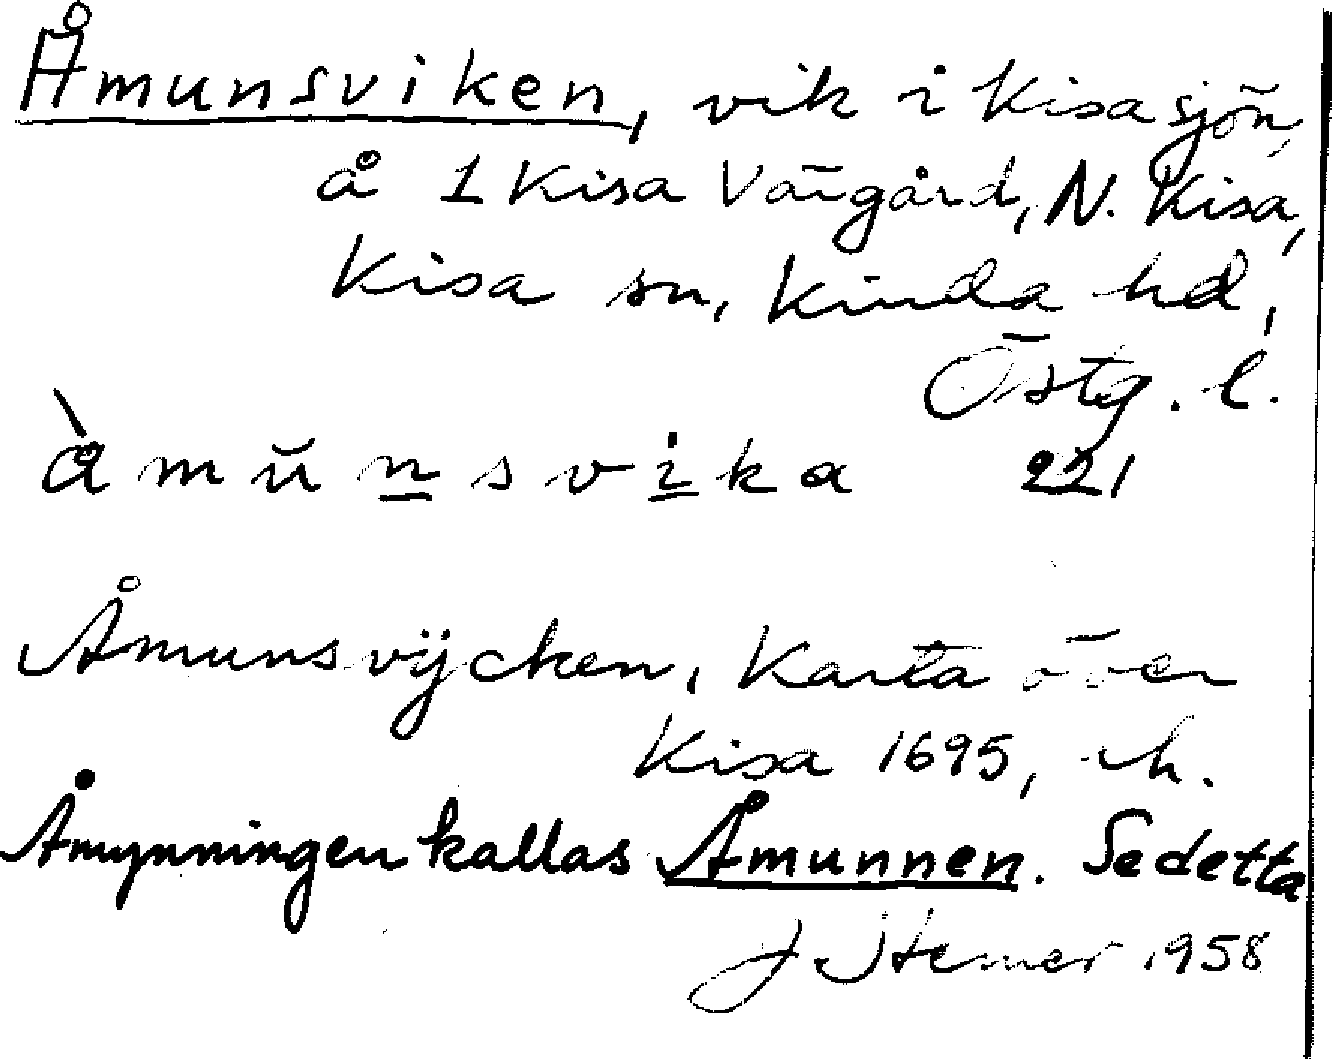 Åmunsviken, vik i Kisasjön,
å 1 Kisa Värgård, N. Kisa,
Kisa sn, Kinda hd,
Östg. l.
å̀ m ŭ n s v i k a 221
Åmunsvÿcken, Karta över
Kisa 1695, ih.
Åmynningen kallas Åmunnen. Se detta
1958